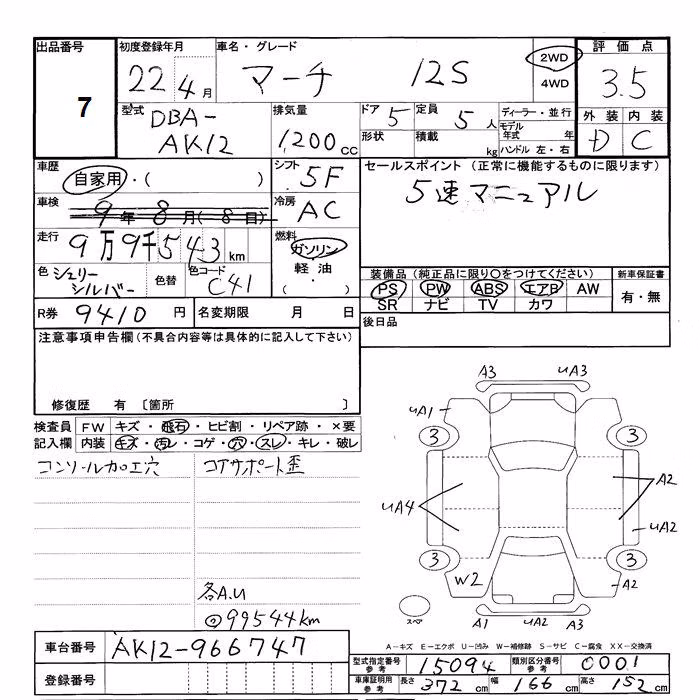 出品番号 7
初度登録年月 22年4月
車名・グレード マーチ 12S
2WD
4WD
評価点 3.5
外装 D 内装 C
型式 DBA-AK12
排気量 1,200cc
ドア 5 定員 5人
形状 積載 kg
ディーラー・並行
モデル年式 年
ハンドル 左・右
車歴 自家用・( )
シフト 5F
セールスポイント (正常に機能するものに限ります)
5速マニュアル
車検 9年8月(8日)
冷房 AC
走行 9万9千543km
燃料 ガソリン
軽油
・
( )
色 シェリーシルバー 色替 色コード C41
装備品 (純正品に限り〇をつけてください) 新車保証書
PS PW ABS エアB AW 有・無
SR ナビ TV カワ
R券 9410円 名変期限 月 日
後日品
注意事項申告欄(不具合内容等は具体的に記入して下さい)
修復歴 有 〔箇所 〕
検査員 FW キズ・飛石・ヒビ割・リペア跡・×要
記入欄 内装 キズ・汚レ・コゲ・穴・スレ・キレ・破レ
コンソール加工穴 コアサポート歪
各A.U
@99544km
A3 UA3
UA1
3 3
UA4 A2
UA2
3 3
W2 A2
スペア A1 UA3
A-キズ E-エクボ U-凹み W-補修跡 S-サビ C-腐食 XX-交換済
車台番号 AK12-966747
登録番号
型式指定番号 参考 15094 類別区分番号 参考 0001
車庫証明用 参考 長さ 372cm 幅 166cm 高さ 152cm